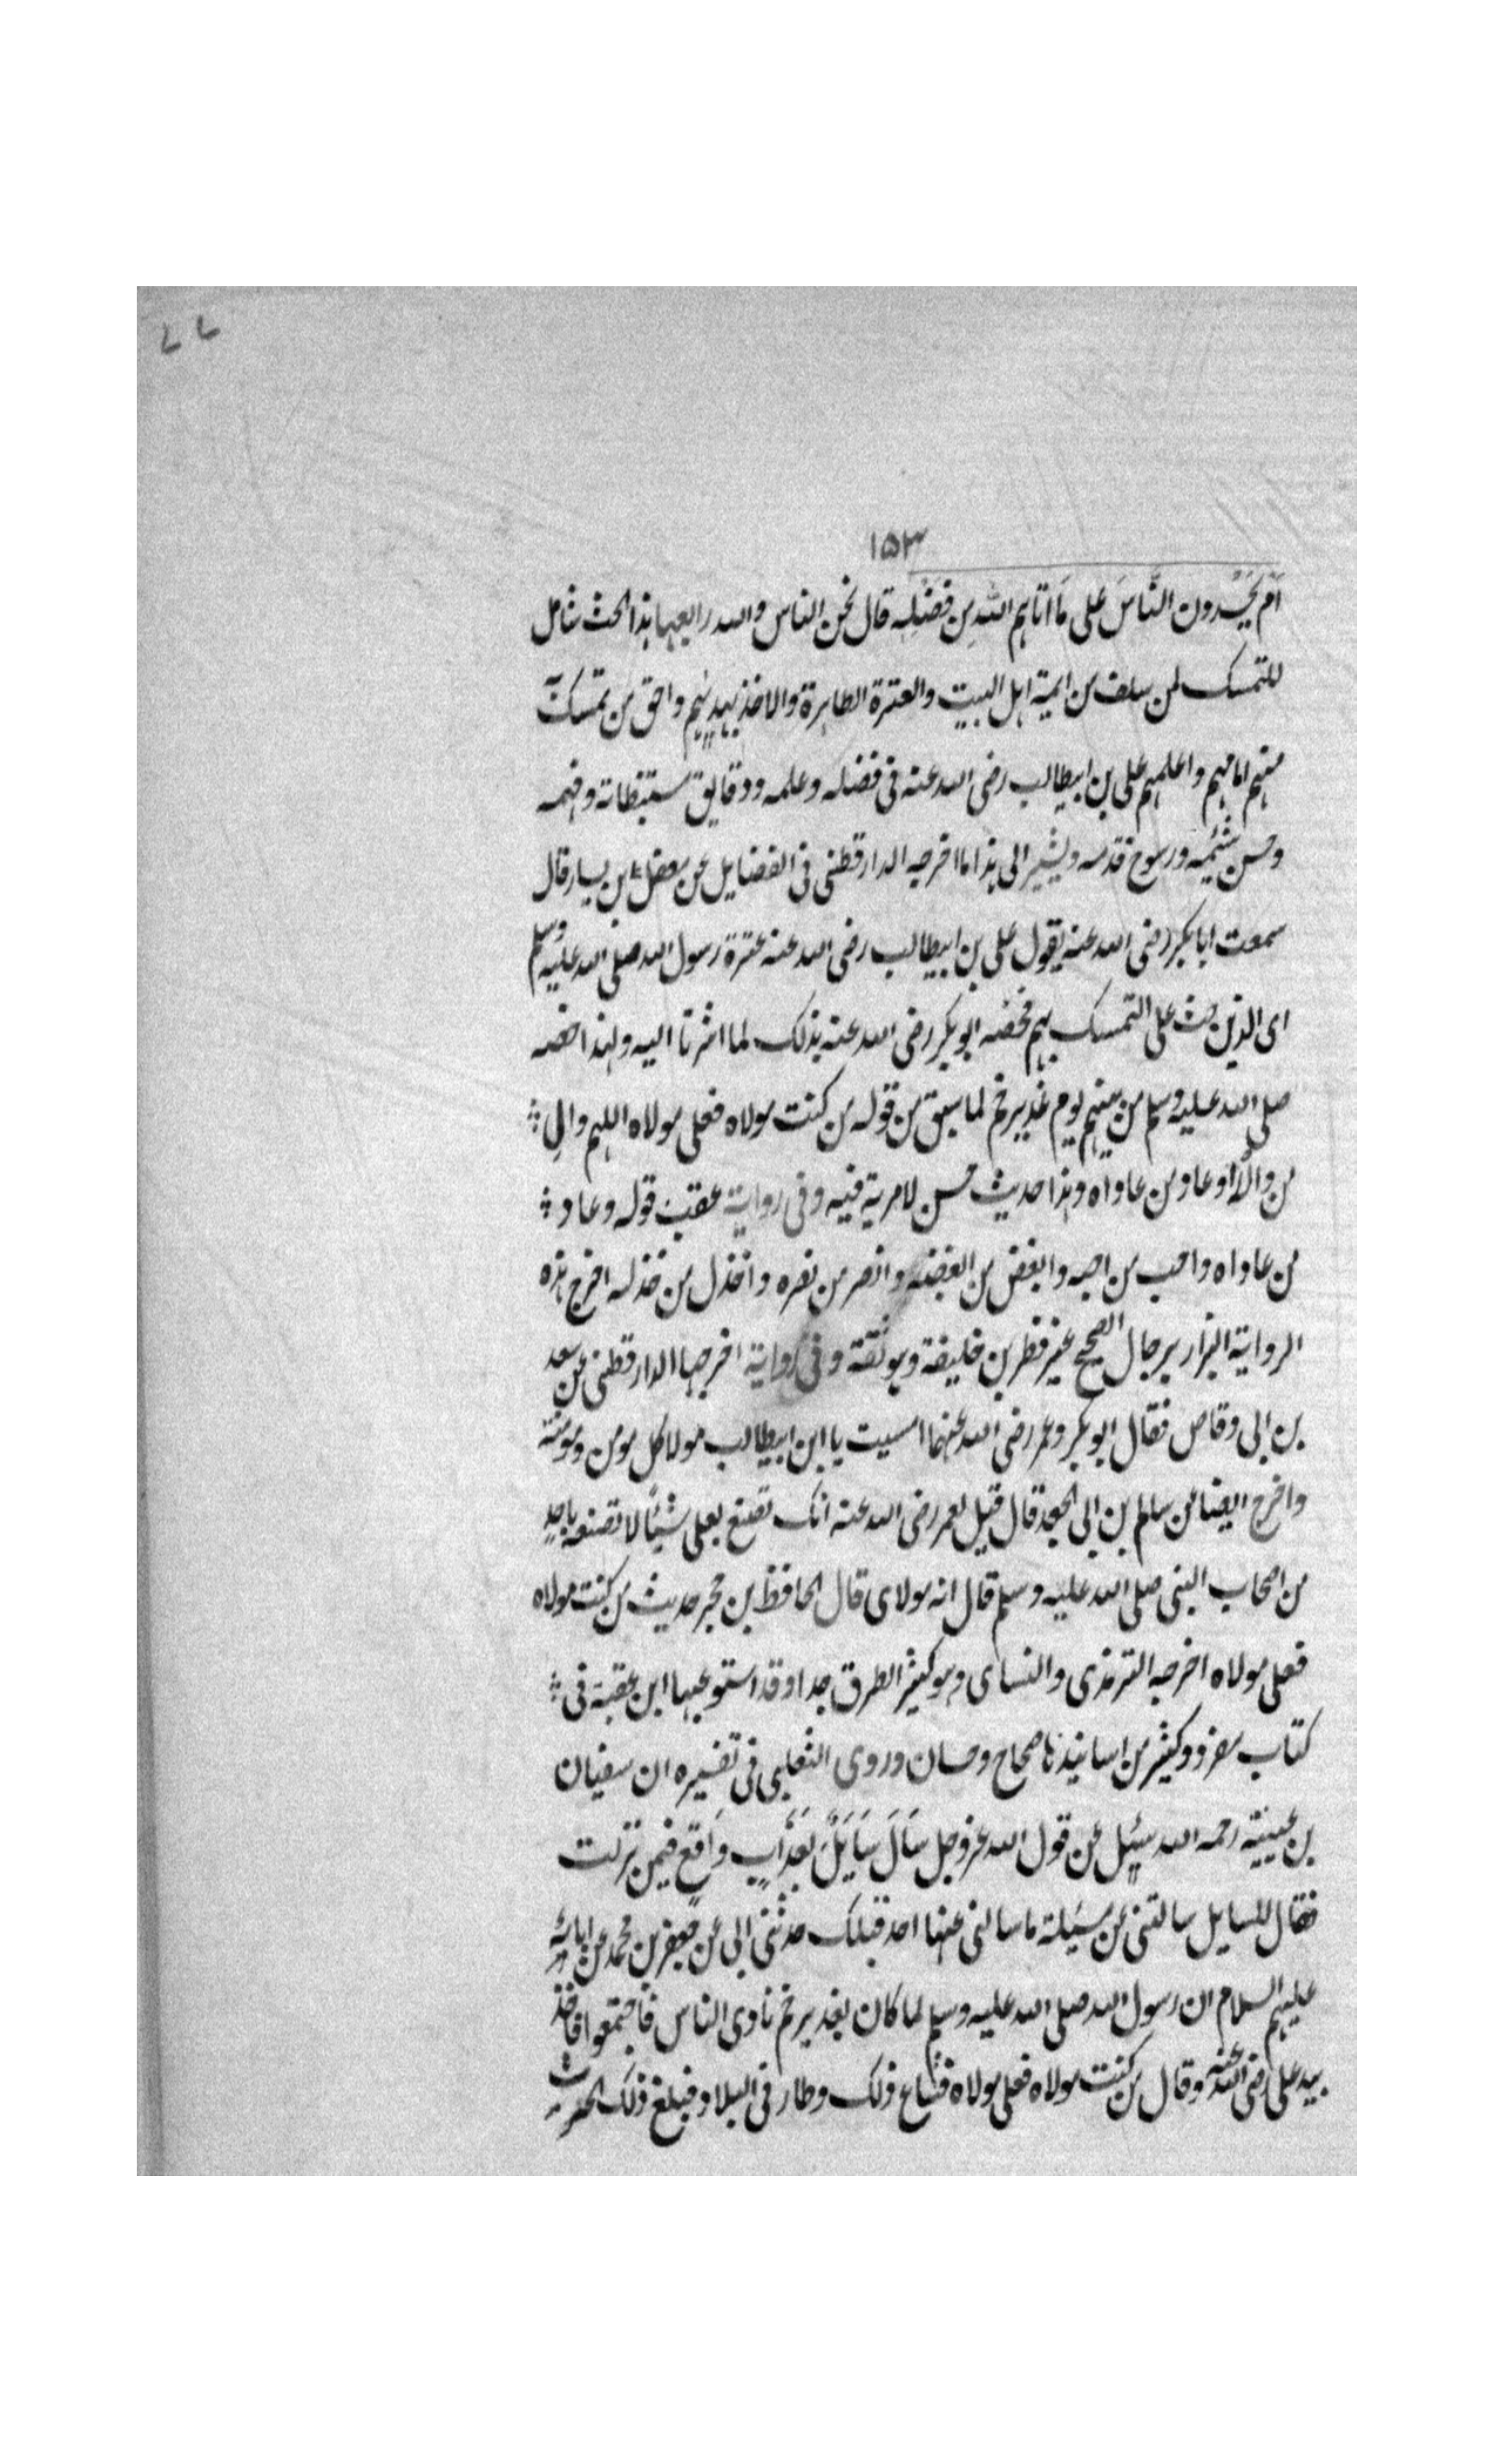 ٧٧
١٥٣
اَمْ يَحْسُدون النَّاسَ على مَا اتاهم اللهُ مِن فَضْلِه قال نحن الناس والله رابعها هذا الحث شامل
للتمسك لمن سلف من ايمة اهل البيت والعترة الطاهرة والاخذ بهديهم واحق من تمسك
منهم امامهم واعلمهم على بن ابيطالب رضى الله عنه فى فضله وعلمه ودقايق مستنبطاته وفهمه
وحسن شيمه ورسوخ قدمه ويشير الى هذا ما اخرجه الدارقطنى فى الفضايل عن معقل ابن يسار قال
سمعت ابابكر رضى الله عنه يقول على بن ابيطالب رضى الله عنه عترة رسول الله صلى الله عليه وسلم
اى الذين حث على التمسك بهم فخصه ابوبكر رضى الله عنه بذلك لما اشرنا اليه ولهذا خصه
صلى الله عليه وسلم من بينهم يوم غدير خم لما سبق من قوله من كنت مولاه فعلى مولاه اللهم والِ
من والاه وعاد من عاداه وهذا حديث حسن لامرية فيه وفى رواية عقب قوله وعاد
من عاداه واحب من احبه وابغض من ابغضه وانصر من نصره واخذل من خذله اخرج هذه
الرواية البزار برجال الصحيح غير فطر بن خليفة وهو ثقة وفى رواية اخرجها الدارقطنى عن سعد
بن ابى وقاص فقال ابوبكر وعمر رضى الله عنهما امسيت يا ابن ابيطالب مولا كل مومن ومومنة
واخرج ايضا عن سالم بن ابى الجعد قال قيل لعمر رضى الله عنه انك تصنع بعلى شيئًا لا تصنعه باحدٍ
من اصحاب النبى صلى الله عليه وسلم قال انه مولاى قال الحافظ بن حجر حديث من كنت مولاه
فعلى مولاه اخرجه الترمذى والنساى وهو كثير الطرق جدا وقد استوعبها ابن عقبة فى
كتاب مفرد وكثير من اسانيدنا صحاح وحسان وروى الثعلبى فى تفسيره ان سفيان
بن عيينة رحمه الله سئِل عن قول الله عزوجل سَاَلَ سَايَلٌ بعَذَابٍ واَقعٍ فيمن نزلت
فقال للسايل سالتنى عن مسَيلة ما سالنى عنها احد قبلك حدثنى ابى عن جعفر بن محمد عن ابائه
عليهم السلام ان رسول الله صلى الله عليه وسلم لما كان بغدير خم نادى الناس فاجتمعوا فاخذ
بيد على رضى الله عنه وقال من كنت مولاه فعلى مولاه فشاع ذلك وطار فى البلاد فبلغ ذلك الحرث